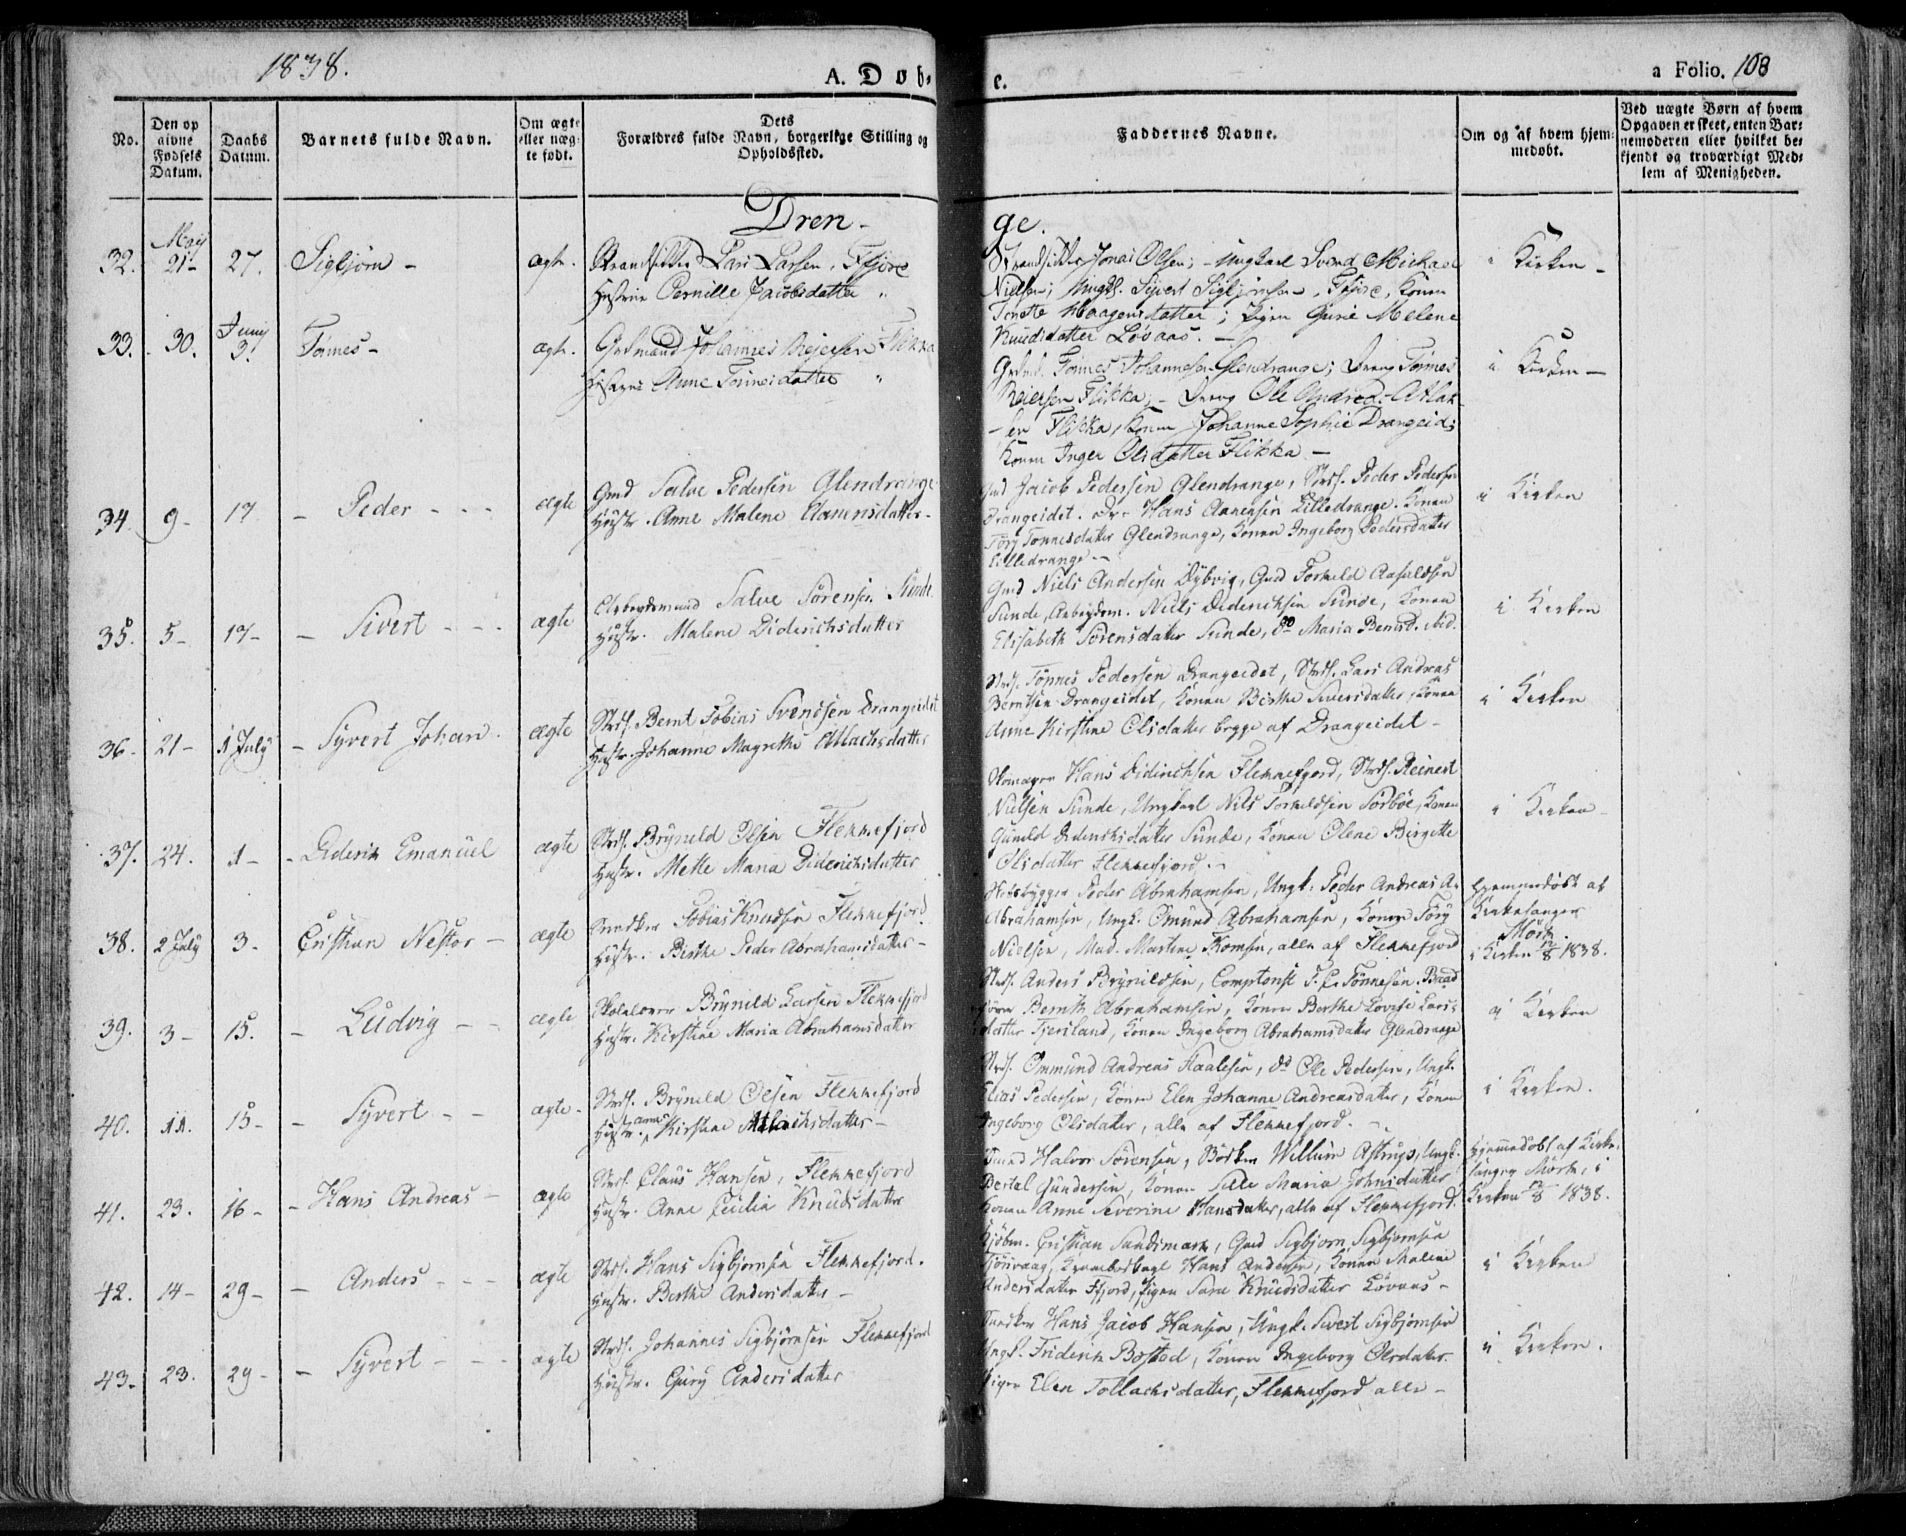 1838.
A. Døb-
e.
a Folio. 108
No.
Den op
givne
Fødsels
Datum.
Daabs
Datum.
Barnets fulde Navn.
Om ægte
eller uæg-
te født.
Dets
Forældres fulde Navn, borgerlige Stilling og
Opholdssted.
Faddernes Navne.
Om og af hvem hjem-
medøbt.
Ved uægte Børn af hvem
Opgaven er skeet, enten Bar-
nemoderen eller hvilket be-
kjendt og troværdigt Med-
lem af Menigheden.
Dren-
ge.
32. May 21- 27. Sigbjørn - ægte. Strandsidder Lars Larsen, Fjire
Hustrue Pernille Jacobsdatter "
Strandsidder Jonas Olsen; - Ungkarl Svend Michael
Nielsen; Ungk. Sivert Sigbjørnsen, Konen
Tonette Haagensdatter; Pigen Gurie Melene
Knudsdatter Løvaas. -
i Kirken -
33. 30. Juny 3. Tønnes - ægte. Grdmand Johannes Reiersen Flikka
Hustrue Anne Tønnesdatter "
Grdmd. Tønnes Johannesen Glendrange; Dreng Tønnes
Reiersen Flikka; - Dreng Ole Andreas Atlak-
-sen Flikka, Konen Johanne Sophie Drangeid;
Konen Inger Olsdatter Flikka -
i Kirken -
34. 9- 17 - Peder - - - ægte Gmd Salve Pedersen Glendrange
Hustr. Anne Malene Aamunsdatter -
Gmd Jacob Pedersen Glendrange, Strds. Peder Pedersen
Drangeidet. Dr. Hans Aanensen Lilledrange. Konen
Tory Tønnesdatter Glendrange, Konen Ingeborg Pedersdatter
Lilledrange -
i Kirken
35. 5- 17- - Sivert - - - ægte Arbeydsmand Salve Sørensen Sunde
Hustr. Malene Diderichsdatter
Gmd Niels Andersen Dybvig, Gmd Torkeld Asfaldsen
Sunde, Arbeydsm. Niels Diderichsen Sunde, Konen
Elisabeth Sørensdatter Sunde, do Maria Berntsd. ibid.
i Kirken
36. 21- 1 July - Syvert Johan. ægte Strds. Bernt Tobias Svendsen Drangeidet
Hustr. Johanne Magrethe Atlachsdatter
Strds. Tønnes Pedersen Drangeidet, Strds. Lars Andreas
Berntsen Drangeidet, Konen Berthe Siversdatter, Konen
Anne Kirstine Olsdatter begge af Drangeidet -
i Kirken
37. 24. 1- - Diderik Emanuel ægte Strds. Brynild Olsen Flekkefjord
Hustr. Mette Maria Diderichsdatter
Skomager Hans Didirichsen Flekkefjord, Strds. Reinert
Nielsen Sunde, Ungkarl Nils Torkeldsen Sørbøe, Konen
Gunild Diderichsdatter Sunde, Konen Olene Birgette
Olsdatter Flekkefjord. -
i Kirken -
38. 2 July 3- Cristian Nestor - ægte Snedker Tobias Knudsen Flekkefjord
Hustr. Berthe Peder Abrahamsdatter -
Peder Abrahamsen, Ungk. Peder Andreas A-
Abrahamsen, Ungk. Omund Abrahamsen, Konen Tory
Nielsen, Mad. Martine Thomsen, alle af Flekkefjord
Hjemmedøbt af
Kirkesanger
Mørk
i Kirken 12/8 1838.
39. 3- 15. - Ludvig - - ægte Brynild Larsen Flekkefjord
Hustr. Kirstine Maria Abrahamsdatter
Strds. Anders Brynildsen, Comptorist T. C. Tønnesen. Baad
Bernth Abrahamsen, Konen Berthe Lovise Lars-
datter Tjersland, Konen Ingeborg Abrahamsdatter Glendrange
i Kirken
40. 11. 15- - Syvert - - ægte - Strds. Brynild Olsen Flekkefjord
Hustr. Anne Kirstine Atlachsdatter -
Strds. Ommund Andreas Haalesen, do Ole Pedersen, Ungk.
Elias Pedersen, Konen Elen Johanne Andreasdatter, Konen
Ingeborg Olsdatter, alle af Flekkefjord. -
i Kirken.
41. 23. 16- - Hans Andreas - ægte Strds. Claus Hansen, Flekkefjord
Hustr. Anne Cecilia Knudsdatter
Halvor Sørensen, Bødker Willum Astrup, Ungk.
Bertel Gundersen, Konen Sille Maria Johnsdatter
Konen Anne Severine Hansdatter, alle af Flekkefjord.
Hjemmedøbt af Kirke-
sanger Mørk, i
Kirken 12/8 1838.
42. 14- 29- - Anders - - - ægte Strds. Hans Sigbjørnsen Flekkefjord.
Hustr. Berthe Andersdatter -
Kjøbm. Cristian Sandsmark, Gmd Sigbjørn Sigbjørnsen
Hans Andersen, Konen Malene
Andersdatter Fjord, Pigen Sara Knudsdatter Løvaas -
i Kirken
43. 23. 29- - Syvert - - - ægte Strds. Johannes Sigbjørnsen Flekkefjord
Hustr. Gury Andersdatter
Snedker Hans Jacob Hansen, Ungk. Sivert Sigbjørnsen
Ungk. Friderik Bøstad, Konen Ingeborg Olsdatter.
Pigen Elen Tollachsdatter, Flekkefjord alle -
i Kirken.